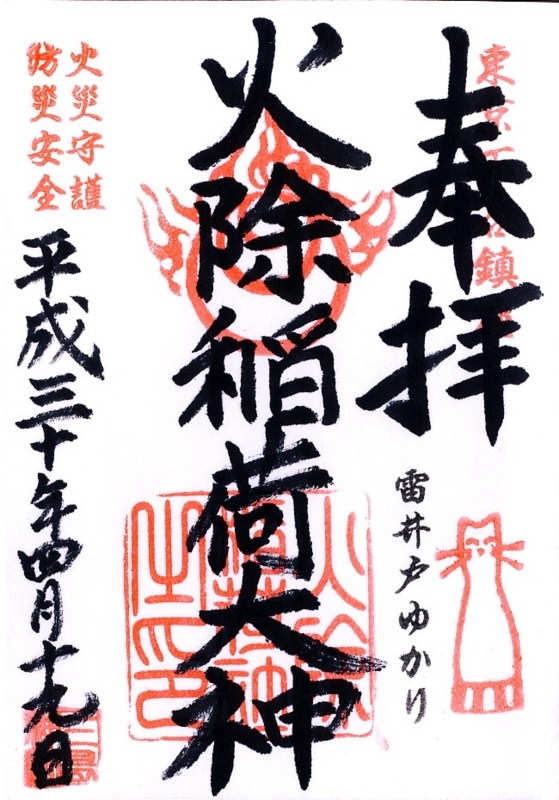 奉拝
雷井戸ゆかり
火除稲荷大神
火災守護
防災安全
平成三十年四月十九日